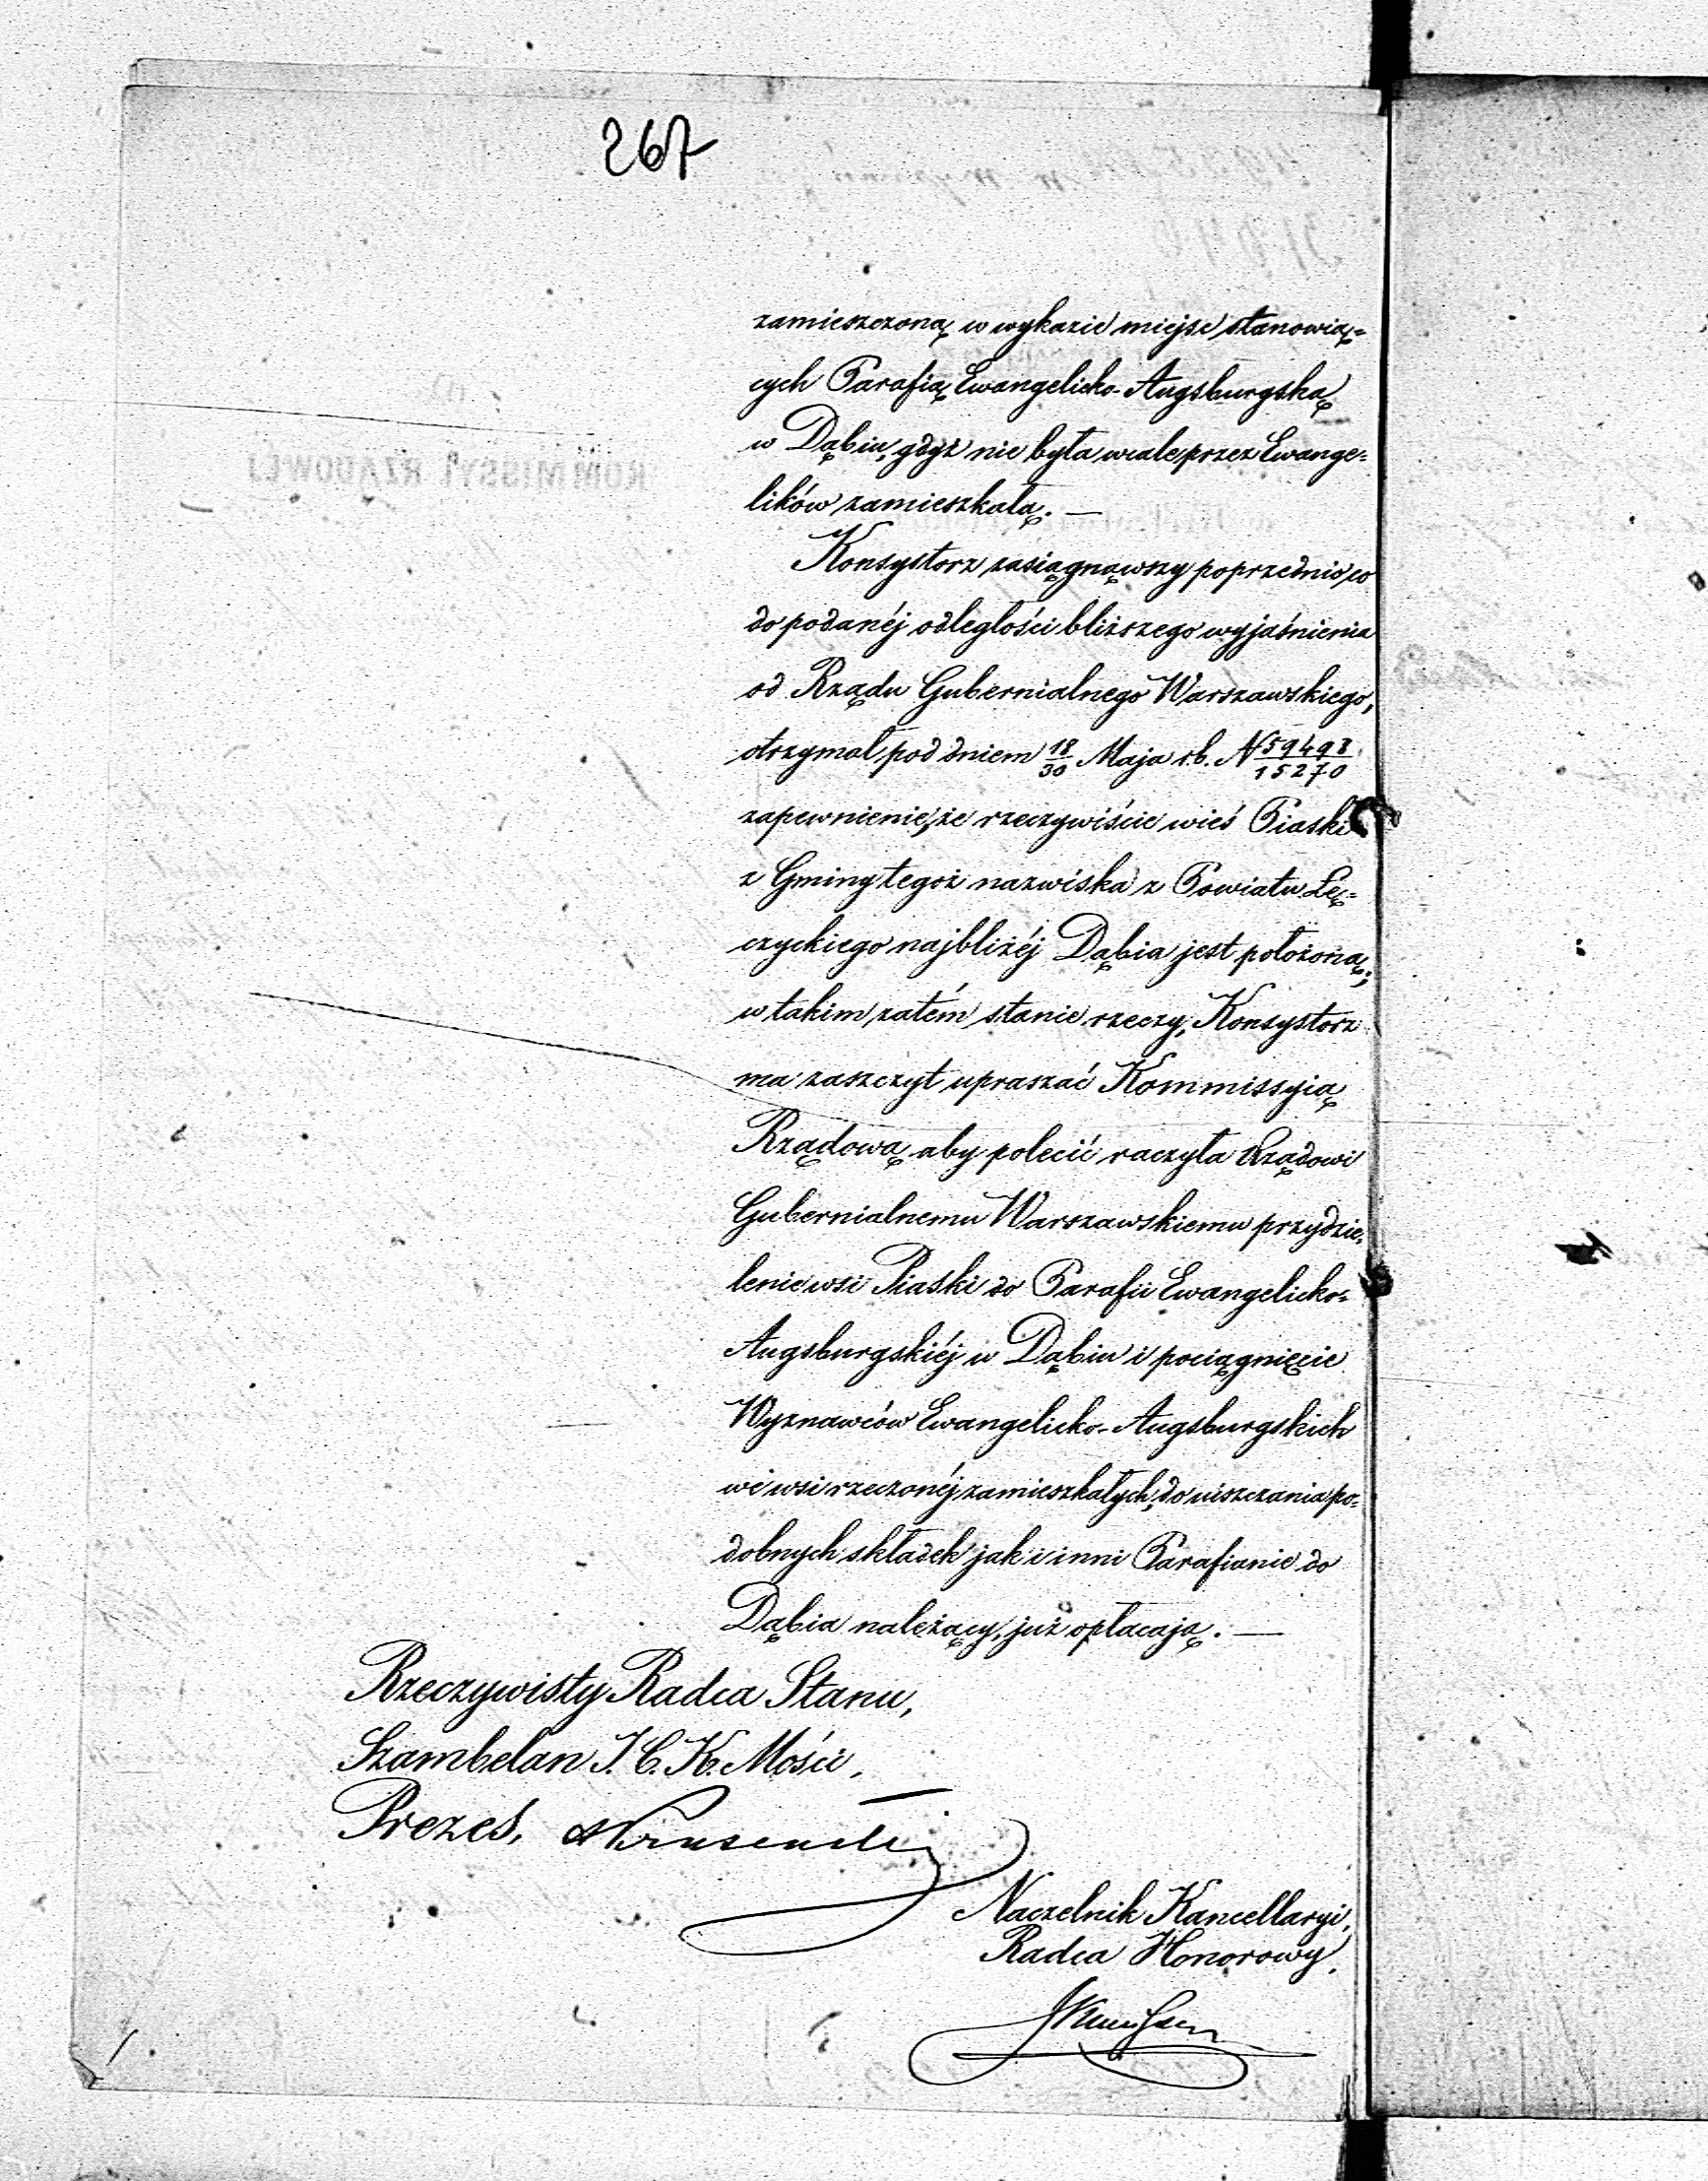 267
zamieszczoną w wykazie miejsc stanowią=
cych Parafią Ewangelicko-Augsburgską
w Dąbiu, gdyż nie była wcale przez Ewange=
lików zamieszkałą. —
Konsystorz zasiągnąwszy poprzednio co
do podanéj odległości bliższego wyjaśnienia
od Rządu Gubernialnego Warszawskiego,
otrzymał pod dniem 18/30 Maja r.b. N 59498/15270
zapewnienie, że rzeczywiście wieś Piaski
z Gminy tegoż nazwiska z Powiatu Łę=
czyckiego najbliżéj Dąbia jest położoną;
w takim zatém stanie rzeczy, Konsystorz
ma zaszczyt upraszać Kommissyią
Rządową aby polecić raczyła Rządowi
Gubernialnemu Warszawskiemu przydzie=
lenie wsi Piaski do Parafii Ewangelicko=
Augsburgskiéj w Dąbiu i pociągnięcie
Wyznawców Ewangelicko-Augsburgskich
we wsi rzeczonéj zamieszkałych, do uiszczania po=
dobnych składek jak i inni Parafianie do
Dąbia należący, już opłacają. —
Rzeczywisty Radca Stanu,
Szambelan J. C. K. Mości,
Prezes,
Naczelnik Kancellaryi,
Radca Honorowy,
KOMMISSYI RZĄDOWEJ